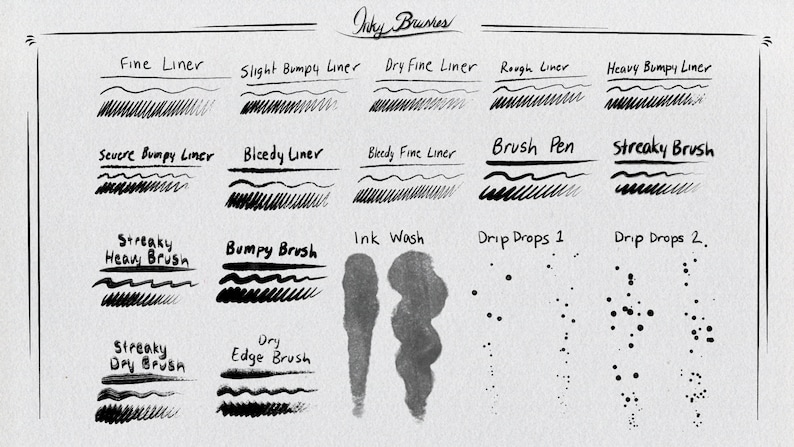 Inky Brushes
Fine Liner
Slight Bumpy Liner
Dry Fine Liner
Rough Liner
Heavy Bumpy Liner
Severe Bumpy Liner
Bleedy Liner
Bleedy Fine Liner
Brush Pen
Streaky Brush
Streaky
Heavy Brush
Bumpy Brush
Ink Wash
Drip Drops 1
Drip Drops 2
Streaky
Dry Brush
Dry
Edge Brush